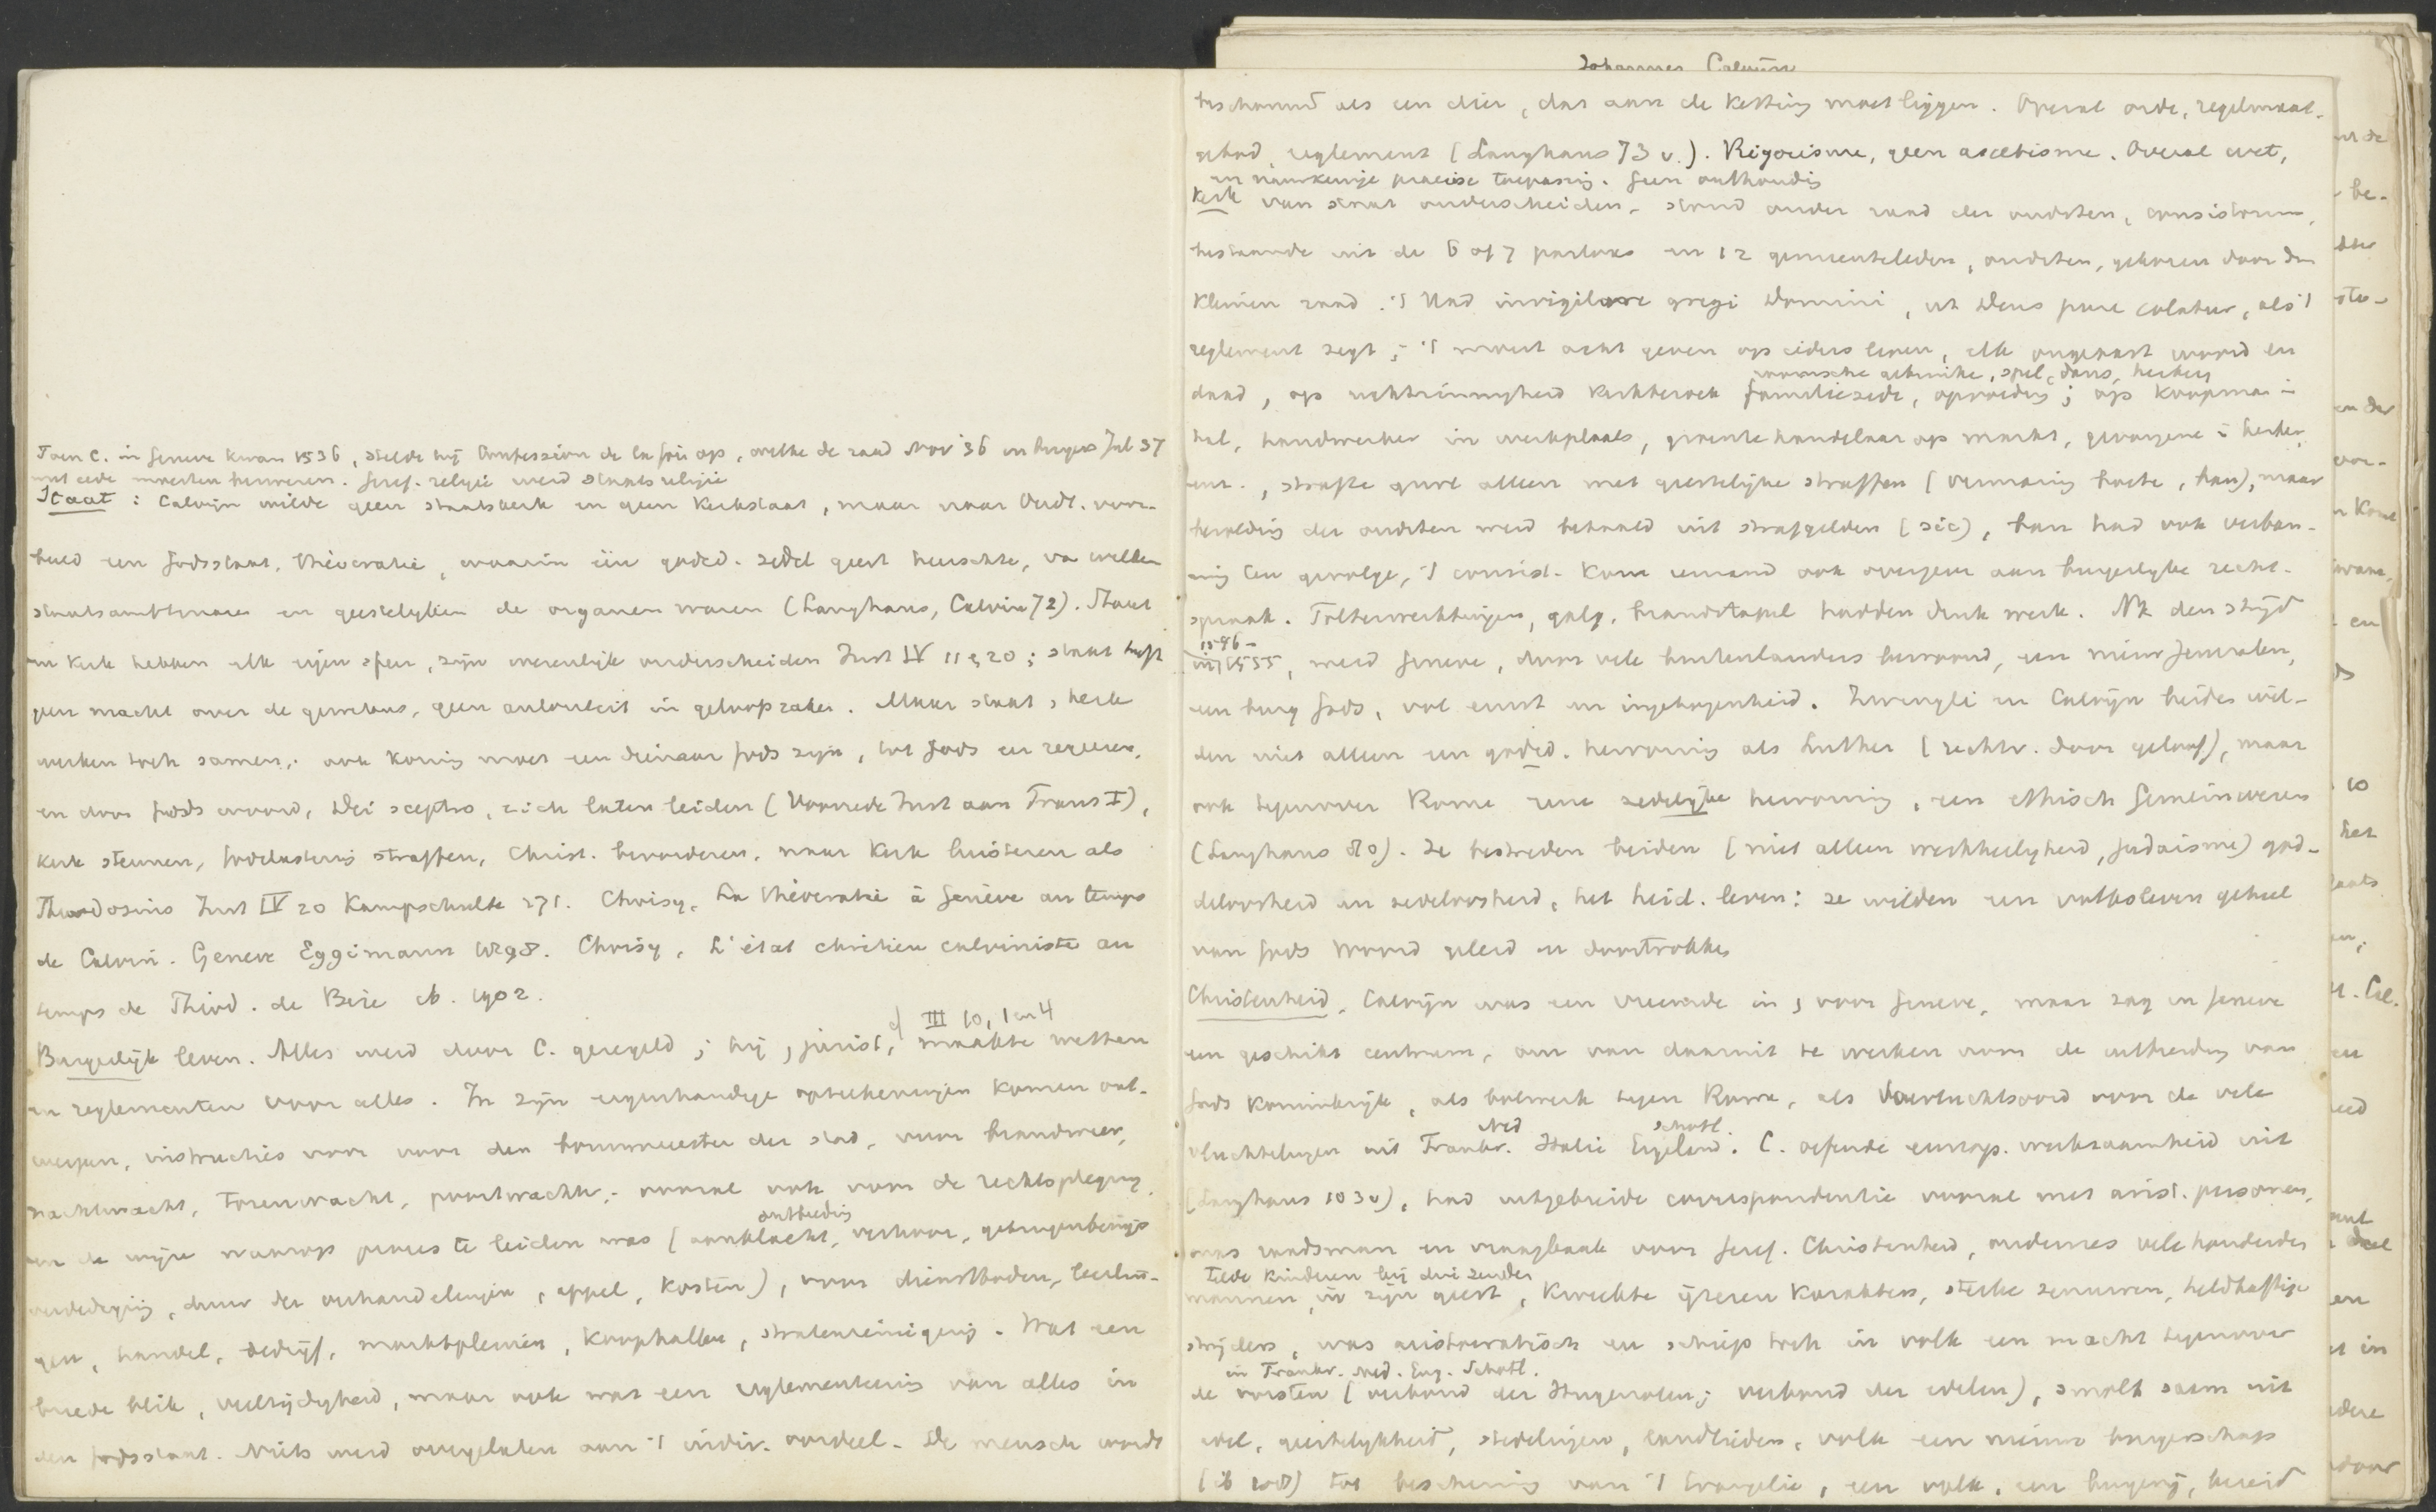 Toen C. in Geneve kwam 1536, stelde hij Confession de la foi op, welke de raad Nov '36 en burgers Jul 37
met eede moesten bezweren. Geref. religie werd staatsreligie
Staat: Calvijn wilde geen staatskerk en geen Kerkstaat, maar naar Oudt. voor-
beeld een Godsstaat, théocratie, waarin één godsd. zedel geest heerschte, van welken
staatsambtenaren en geestelijken de organen waren (Langhans, Calvin 72). Staat
en Kerk hebben elk eigen sfeer, zijn wezenlijk onderscheiden Inst IV 11 & 20; staat heeft
geen macht over de gewetens, geen autoriteit in geloofszaken. Maar staat & kerk
werken toch samen; ook Koning moet een dienaar Gods zijn, tot Gods eer regeeren,
en door Gods woord, Dei sceptro, zich laten leiden (Voorrede Inst aan Frans I),
Kerk steunen, godslastering straffen, Christ. bevorderen, naar Kerk luisteren als
Theodosius Inst IV 20 Kampschulte 271. Choisy, La théocratie à Genève au temps
de Calvin. Geneve Eggimann 1898. Choisy, L'état chrétien calviniste au
temps de Théod. de Bèze ib. 1902.
Burgerlijk leven. Alles werd door C. geregeld; hij, jurist, cf III 10, 1 en 4 maakte wetten
en reglementen voor alles. In zijn eigenhandige opteekeningen komen ont-
werpen, instructies voor voor den bouwmeester der stad, voor brandweer,
nachtwacht, torenwacht, poortwachter; vooral ook voor de rechtspleging,
en de wijze waarop proces te leiden was (aanklacht, ontbieding verhoor, getuigenbewijs
verdediging, duur der verhandelingen, appel, kosten), voor dienstboden, leerlin-
gen, handel, bedrijf, marktpleinen, koophallen, stratenreiniging. Wat een
breede blik, veelzijdigheid, maar ook wat een reglementeering van alles in
den Godsstaat. Niets werd overgelaten aan 't indiv. oordeel. De mensch wordt
Johannes Calvijn
beschouwd als een dier, dat aan de Ketting moet liggen. Overal orde, regelmaat,
gebod, reglement (Langhans 73 v.). Rigorisme, geen ascetisme. Overal wet,
en nauwkeurige precise toepassing. Geen onthouding
Kerk van staat onderscheiden, stond onder raad der oudsten, consistorium,
bestaande uit de 6 of 7 pastores en 12 gemeenteleden, oudsten, gekozen door den
Kleinen raad. 't Had invigilare gregi Domini, ut Deus pure colatur, als 't
reglement zegt; 't moest acht geven op ieders leven, elk ongepast woord en
daad, op rechtzinnigheid kerkbezoek roomsche gebruiken, spel, dans, herberg familiezede, opvoeding; op koopman in
hal, handwerker in werkplaats, groentehandelaar op markt, gevangene in kerker
enz., strafte zware alleen met geestelijke straffen (vermaning boete, ban), maar
bezolding der oudsten werd betaald uit strafgelden (sic), ban had ook verban-
ning ten gevolge, 't consist. kon iemand ook overgeven aan burgerlijke recht-
spraak. Folterwerktuigen, galg, brandstapel hadden druk werk. Na den strijd
in 1546-1555, werd Geneve, door vele buitenlanders bewoond, een nieuw Jeruzalem,
een burg Gods, vol ernst en ingetogenheid. Zwingli en Calvijn beiden wil-
den niet alleen een godsd. hervorming als Luther (rechtv. door geloof), maar
ook tegenover Rome eene zedelijke hervorming, een ethisch Gemeinwesen
(Langhans 80). Ze bestreden beiden (niet alleen werkheiligheid, judaisme) god-
deloosheid en zedeloosheid, het heid. leven: ze wilden een volksleven geheel
van Gods Woord geleid en doortrokken
Christenheid. Calvijn was een vreemde in & voor Geneve, maar zag in Geneve
een geschikt centrum, om van daaruit te werken voor de uitbreiding van
Gods Koninkrijk, als bolwerk tegen Rome, als toevluchtsoord voor de vele
vluchtelingen uit Frankr. Ned Italie Engeland Schotl. C. oefende europ. werkzaamheid uit
(Langhans 103 v), had uitgebreide correspondentie vooral met arist. personen,
was raadsman en vraagbaak voor Geref. Christenheid, onderwees vele honderden
telde kinderen bij duizenden
mannen in zijn geest, kweekte ijzeren karakters, sterke zenuwen, heldhaftige
strijders, was aristocratisch en schiep toch in volk een macht tegenover
in Frankr. Ned. Eng. Schotl.
de vorsten (verbond der Hugenoten; verbond der edelen), smolt saam uit
adel, geestelijkheid, stedelingen, landlieden, volk een nieuw burgerschap
(ib 108) tot bescherming van 't Evangelie, een volk, een burgerij, bereid